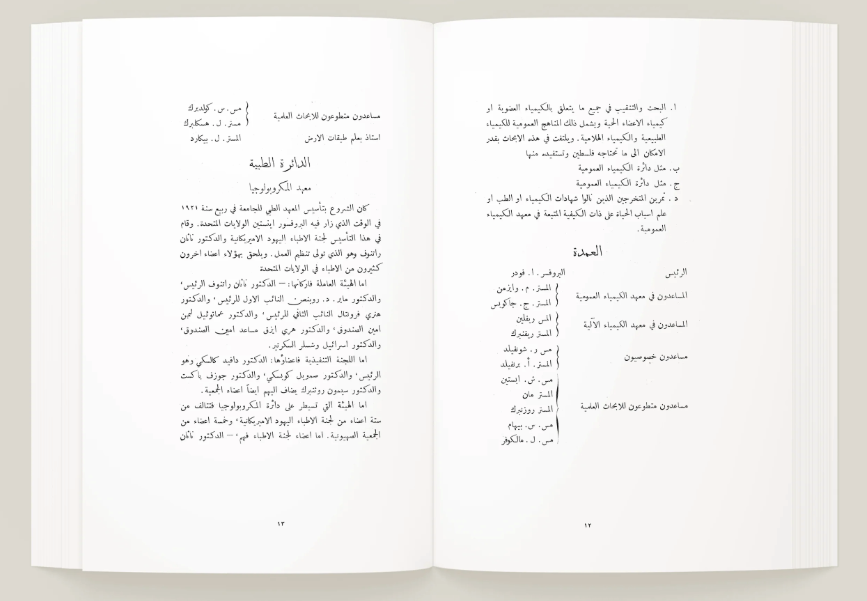 ١. البحث والتنقيب في جميع ما يتعلق بالكيمياء العضوية او
كيمياء الاعضاء الحية ويشمل ذلك المناهج العمومية للكيمياء
الطبيعية والكيمياء الهلامية. ويلتفت في هذه الابحاث بقدر
الامكان الى ما تحتاجه فلسطين وتستفيده منها
ب. مثل دائرة الكيمياء العمومية
ج. مثل دائرة الكيمياء العمومية
د. تمرين المتخرجين الذين نالوا شهادات الكيمياء او الطب او
علم اسباب الحياة على ذات الكيفية المتبعة في معهد الكيمياء
العمومية.
العمدة
الرئيس البروفسر. ا. فودر
المساعدون في معهد الكيمياء العمومية المستر. م. وايزمن
المستر. ج. جاكوبس
المساعدون في معهد الكيمياء الآلية المس ريفلين
المستر ريفتبرك
مساعدون خصوصيون مس ر. شونفيلد
المستر. أ. برنفيلد
مساعدون متطوعون للابحاث العلمية مس. ش. ايستين
المستر مان
المستر روزنبرك
مس. س. بيهام
مس. ل. مالكوفر
١٢
مساعدون متطوعون للابحاث العلمية مس. س. كولدبرك
مستر. ل. هسكلبرك
استاذ بعلم طبقات الارض المستر. ل. بيكارد
الدائرة الطبية
معهد المكروبولوجيا
كان الشروع بتأسيس المعهد الطبي للجامعة في ربيع سنة ١٩٢١
في الوقت الذي زار فيه البروفسور اينستين الولايات المتحدة. وقام
في هذا التأسيس لجنة الاطباء اليهود الاميريكانية والدكتور ناتان
راتنوف وهو الذي تولى تنظيم العمل. ويلحق بهؤلاء اعضاء اخرون
كثيرون من الاطباء في الولايات المتحدة
اما الهيئة العاملة فاركانها: — الدكتور ناتان راتنوف الرئيس،
والدكتور ماير. د. روبنصن النائب الاول للرئيس، والدكتور
هنري فرونتال النائب الثاني للرئيس، والدكتور عمانوئيل
امين الصندوق، والدكتور هري ايزق مساعد امين الصندوق،
والدكتور اسرائيل وشسلر السكرتير.
اما اللجنة التنفيذية فاعضاؤها: الدكتور دافيد كالسكي وهو
الرئيس، والدكتور صمويل كوبسكي، والدكتور جوزف باكست
والدكتور سيمون روتنبرك يضاف اليهم ايضاً اعضاء الجمعية.
اما الهيئة التي تسيطر على دائرة المكروبولوجيا فتتالف من
ستة اعضاء من لجنة الاطباء اليهود الاميريكانية، وخمسة اعضاء من
الجمعية الصهيونية. اما اعضاء لجنة الاطباء فهم، — الدكتور ناتان
١٣